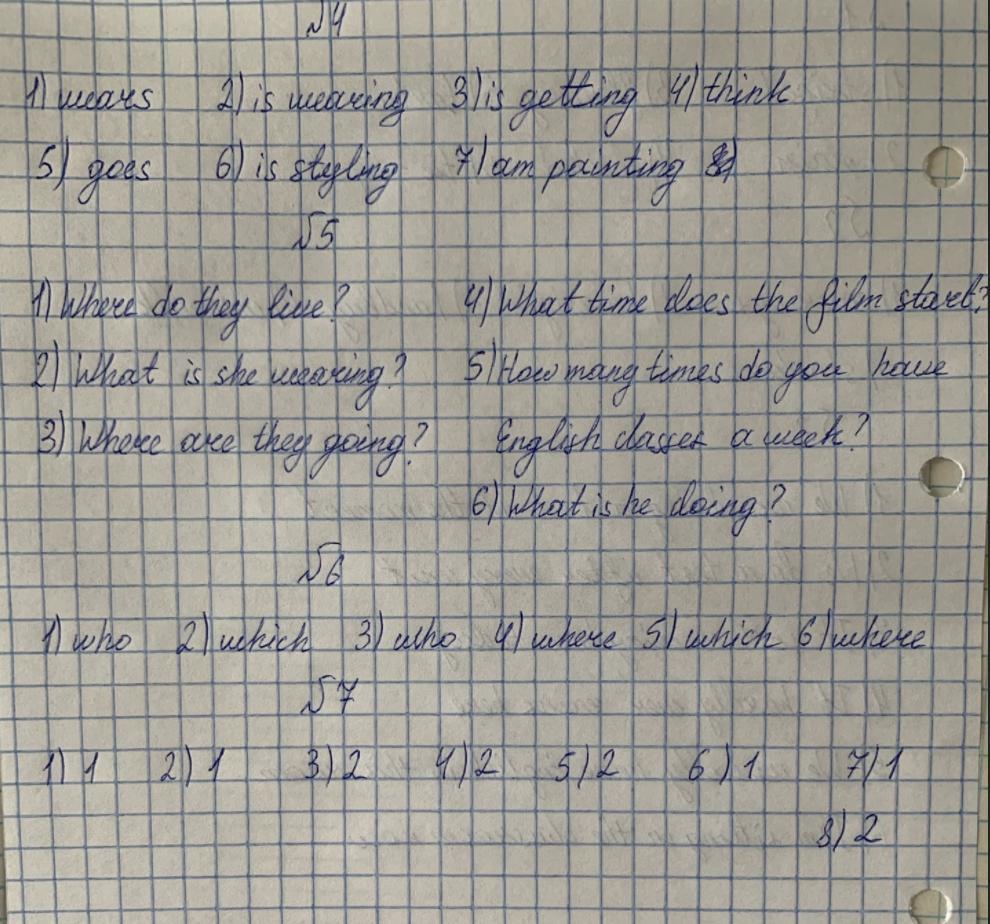 №4
1) wears 2) is wearing 3) is getting 4) think
5) goes 6) is styling 7) am painting
№5
1) Where do they live? 4) What time does the film start?
2) What is she wearing? 5) How many times do you have
3) Where are they going? English classes a week?
6) What is he doing?
№6
1) who 2) which 3) who 4) where 5) which 6) where
№7
1) 1 2) 1 3) 2 4) 2 5) 2 6) 1 7) 1
8) 2